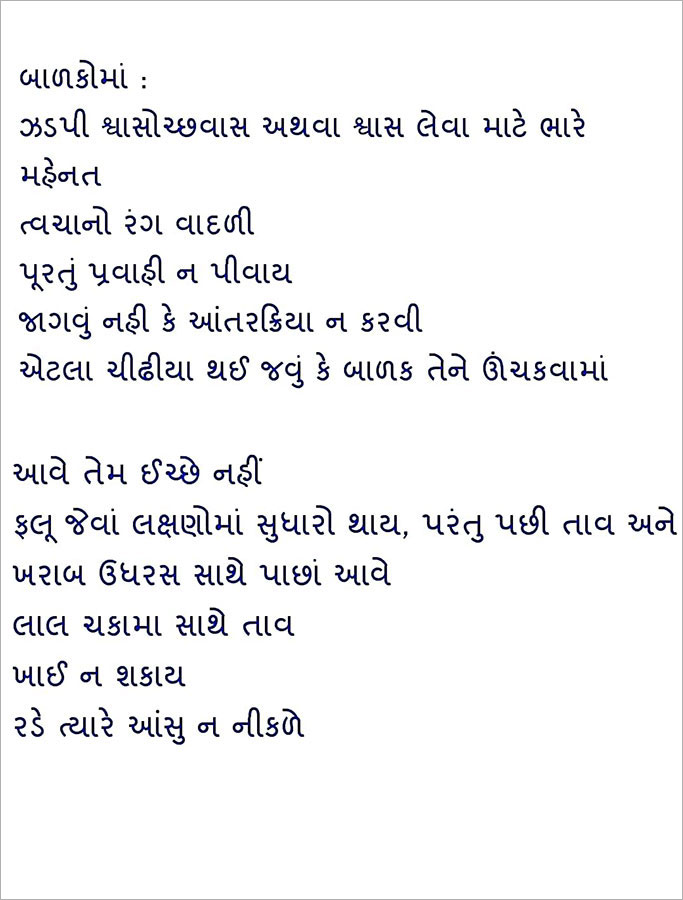 બાળકોમાં :
ઝડપી શ્વાસોચ્છવાસ અથવા શ્વાસ લેવા માટે ભારે
મહેનત
ત્વચાનો રંગ વાદળી
પૂરતું પ્રવાહી ન પીવાય
જાગવું નહી કે આંતરક્રિયા ન કરવી
એટલા ચીઢીયા થઈ જવું કે બાળક તેને ઊંચકવામાં
આવે તેમ ઈચ્છે નહીં
ફલૂ જેવાં લક્ષણોમાં સુધારો થાય, પરંતુ પછી તાવ અને
ખરાબ ઉધરસ સાથે પાછાં આવે
લાલ ચકામા સાથે તાવ
ખાઈ ન શકાય
રડે ત્યારે આંસુ ન નીકળે